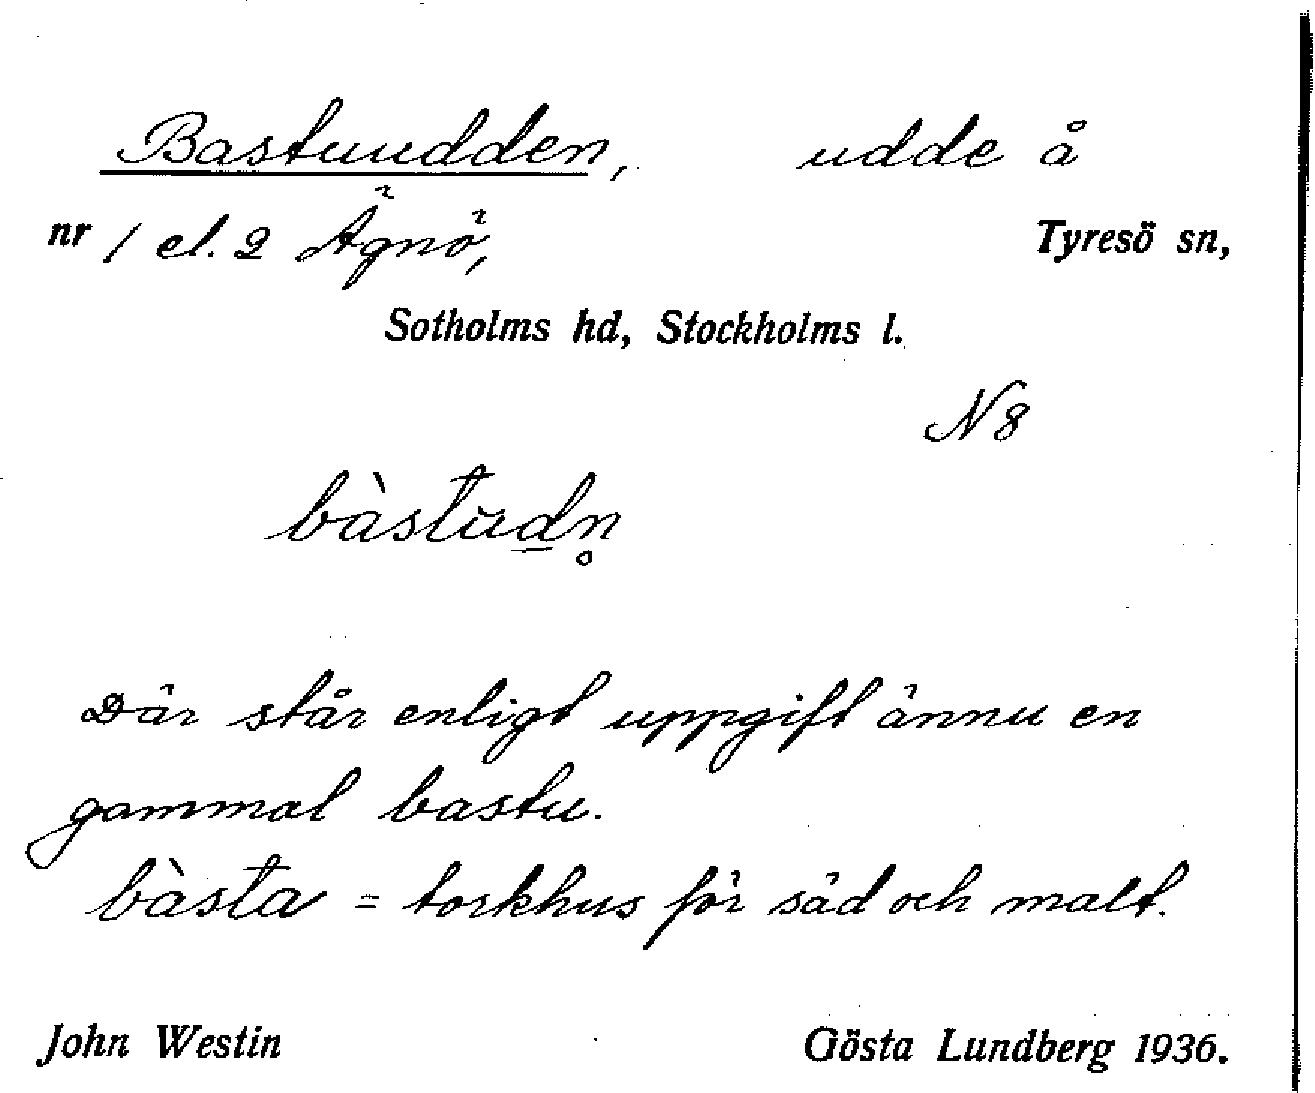 Bastuudden, udde å
nr 1 el. 2 Ägnö, Tyresö sn,
Sotholms hd, Stockholms l.
N 8
bàstud̲n̥
Där står enligt uppgift ännu en
gammal bastu.
bàsta = torkhus för säd och malt.
John Westin Gösta Lundberg 1936.